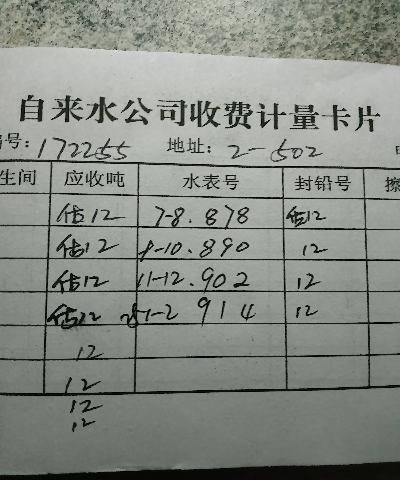 自来水公司收费计量卡片
编号: 172255 地址: 2-502
生间 应收吨 水表号 封铅号 擦
估12 7-8.878 估12
估12 9-10.890 12
估12 11-12.902 12
估12 1-2 914 12
12
12
12
12